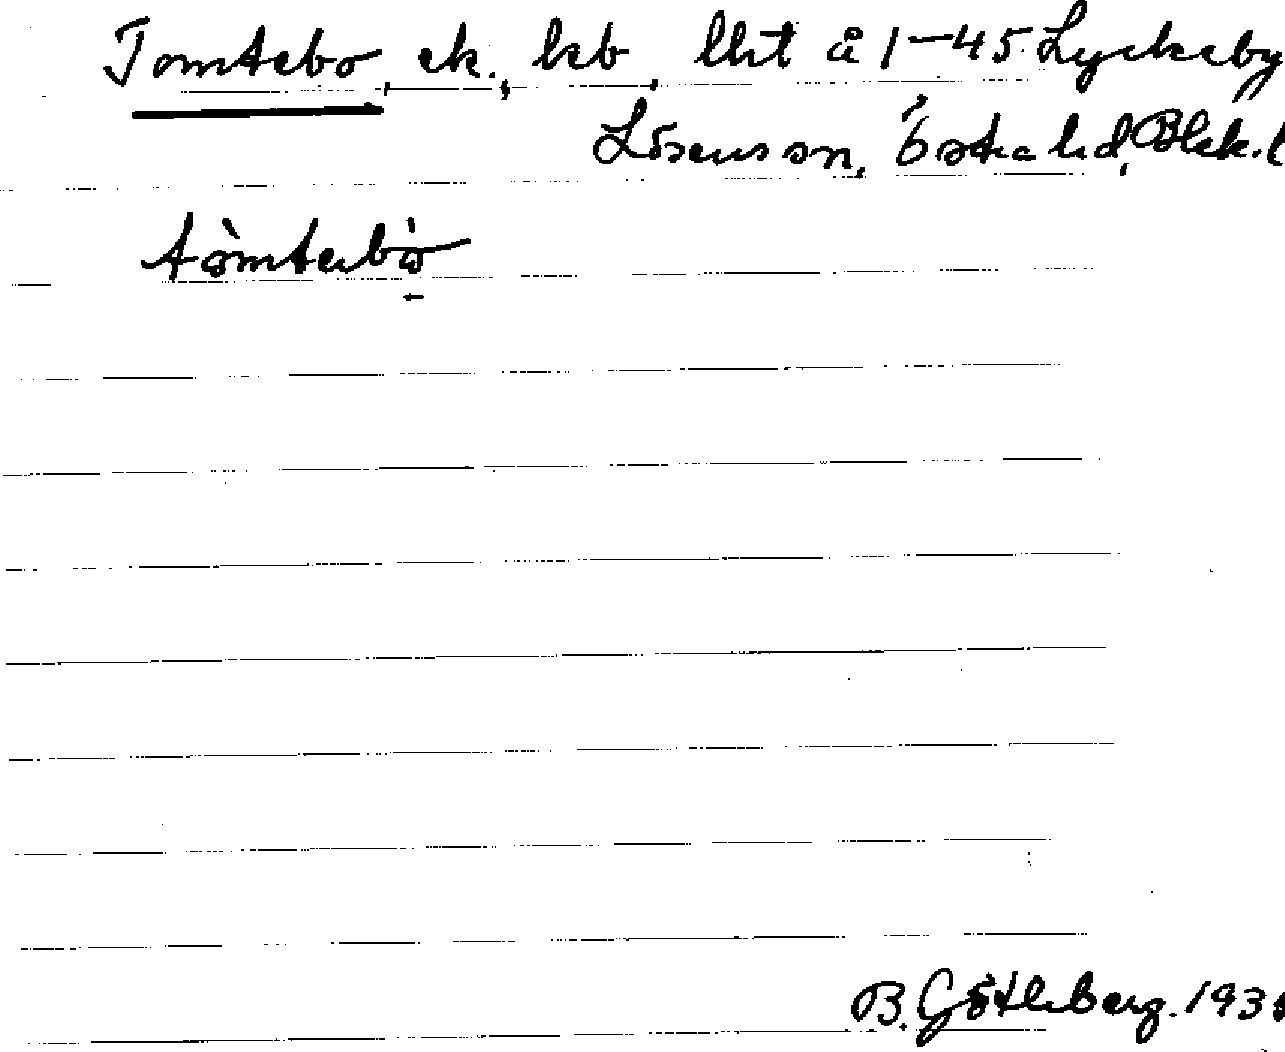 Tomtebo, ek., leb, lht å 1-45 Lyckeby
Lösens sn, Östra hd, Blek. l
tòmtebò
B. Götleberg. 193